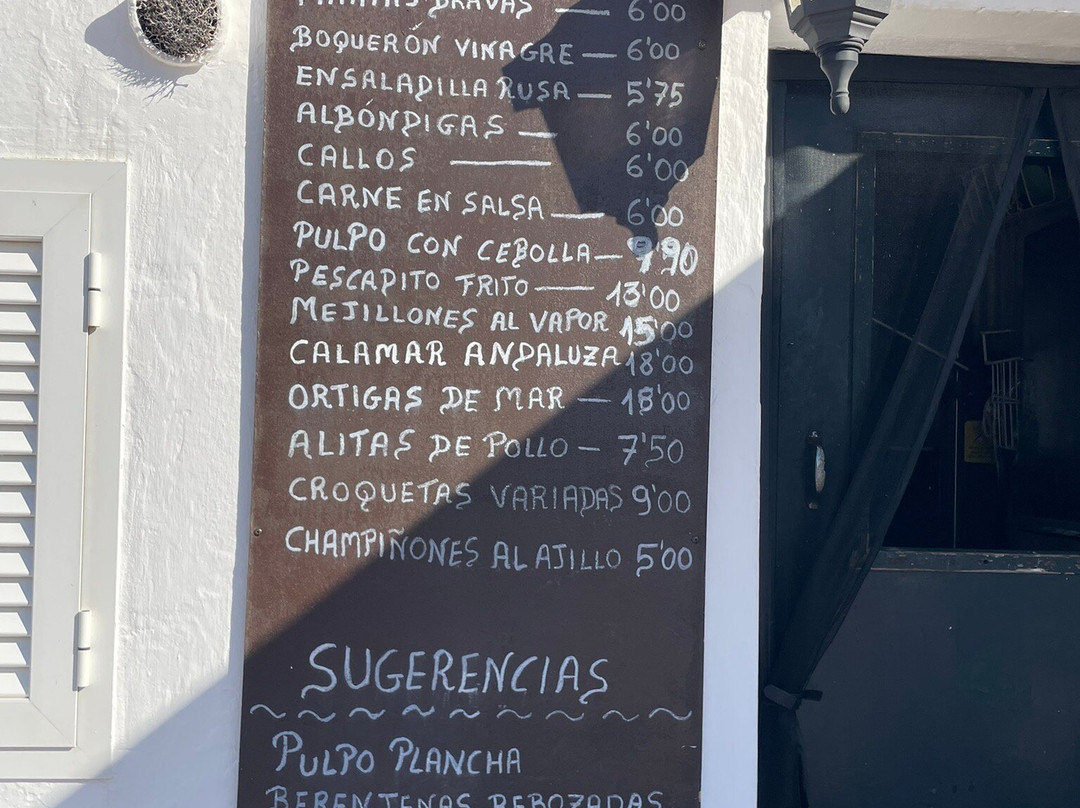 PATATAS BRAVAS — 6'00
BOQUERÓN VINAGRE — 6'00
ENSALADILLA RUSA — 5'75
ALBÓNDIGAS — 6'00
CALLOS — 6'00
CARNE EN SALSA — 6'00
PULPO CON CEBOLLA — 7'90
PESCADITO FRITO — 13'00
MEJILLONES AL VAPOR 15'00
CALAMAR ANDALUZA 18'00
ORTIGAS DE MAR — 18'00
ALITAS DE POLLO — 7'50
CROQUETAS VARIADAS 9'00
CHAMPIÑONES AL AJILLO 5'00
SUGERENCIAS
PULPO PLANCHA
BERENTENAS REBOZADAS